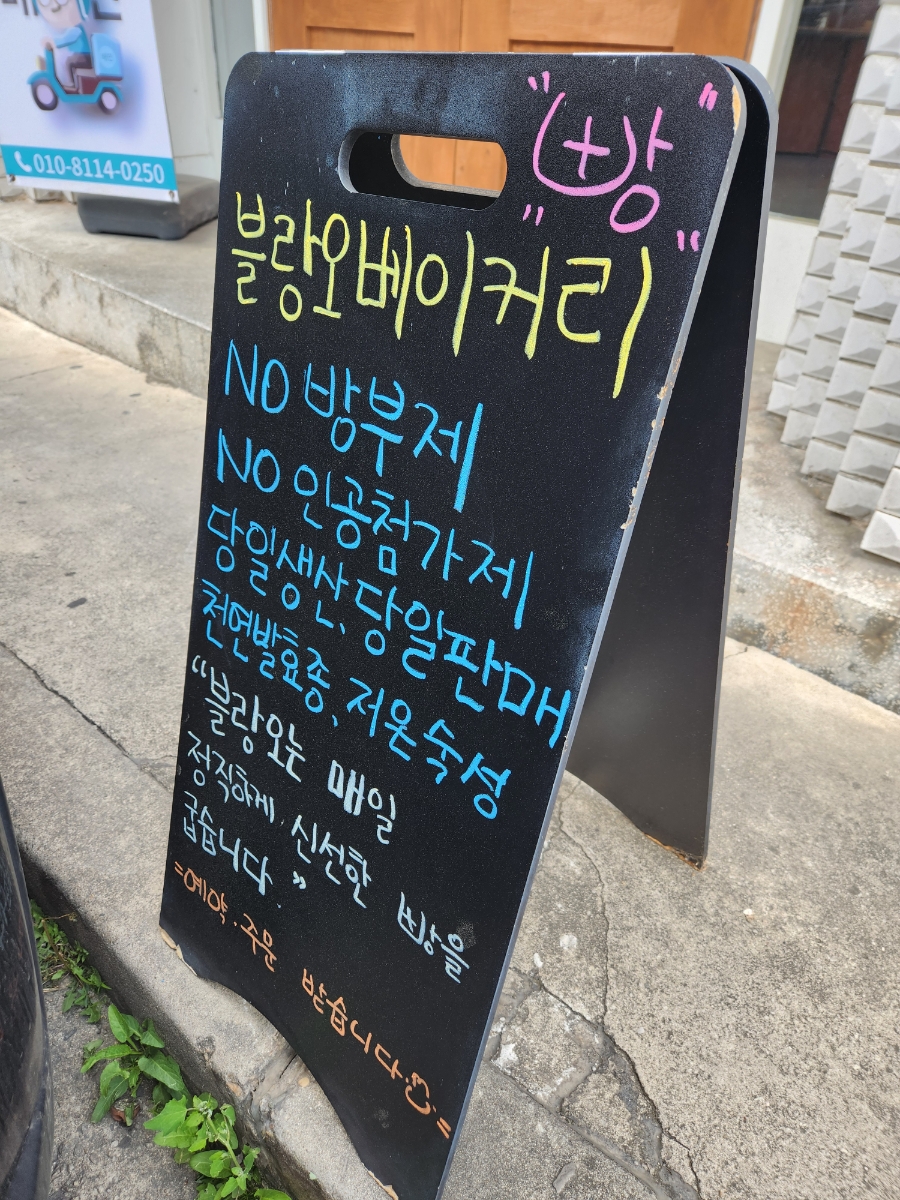 010-8114-0250
"빵"
"블랑오베이커리"
NO 방부제
NO 인공첨가제
당일생산, 당일판매
천연발효종, 저온숙성
"블랑오는 매일
정직하게 신선한 빵을
굽습니다."
=예약·주문 받습니다.=